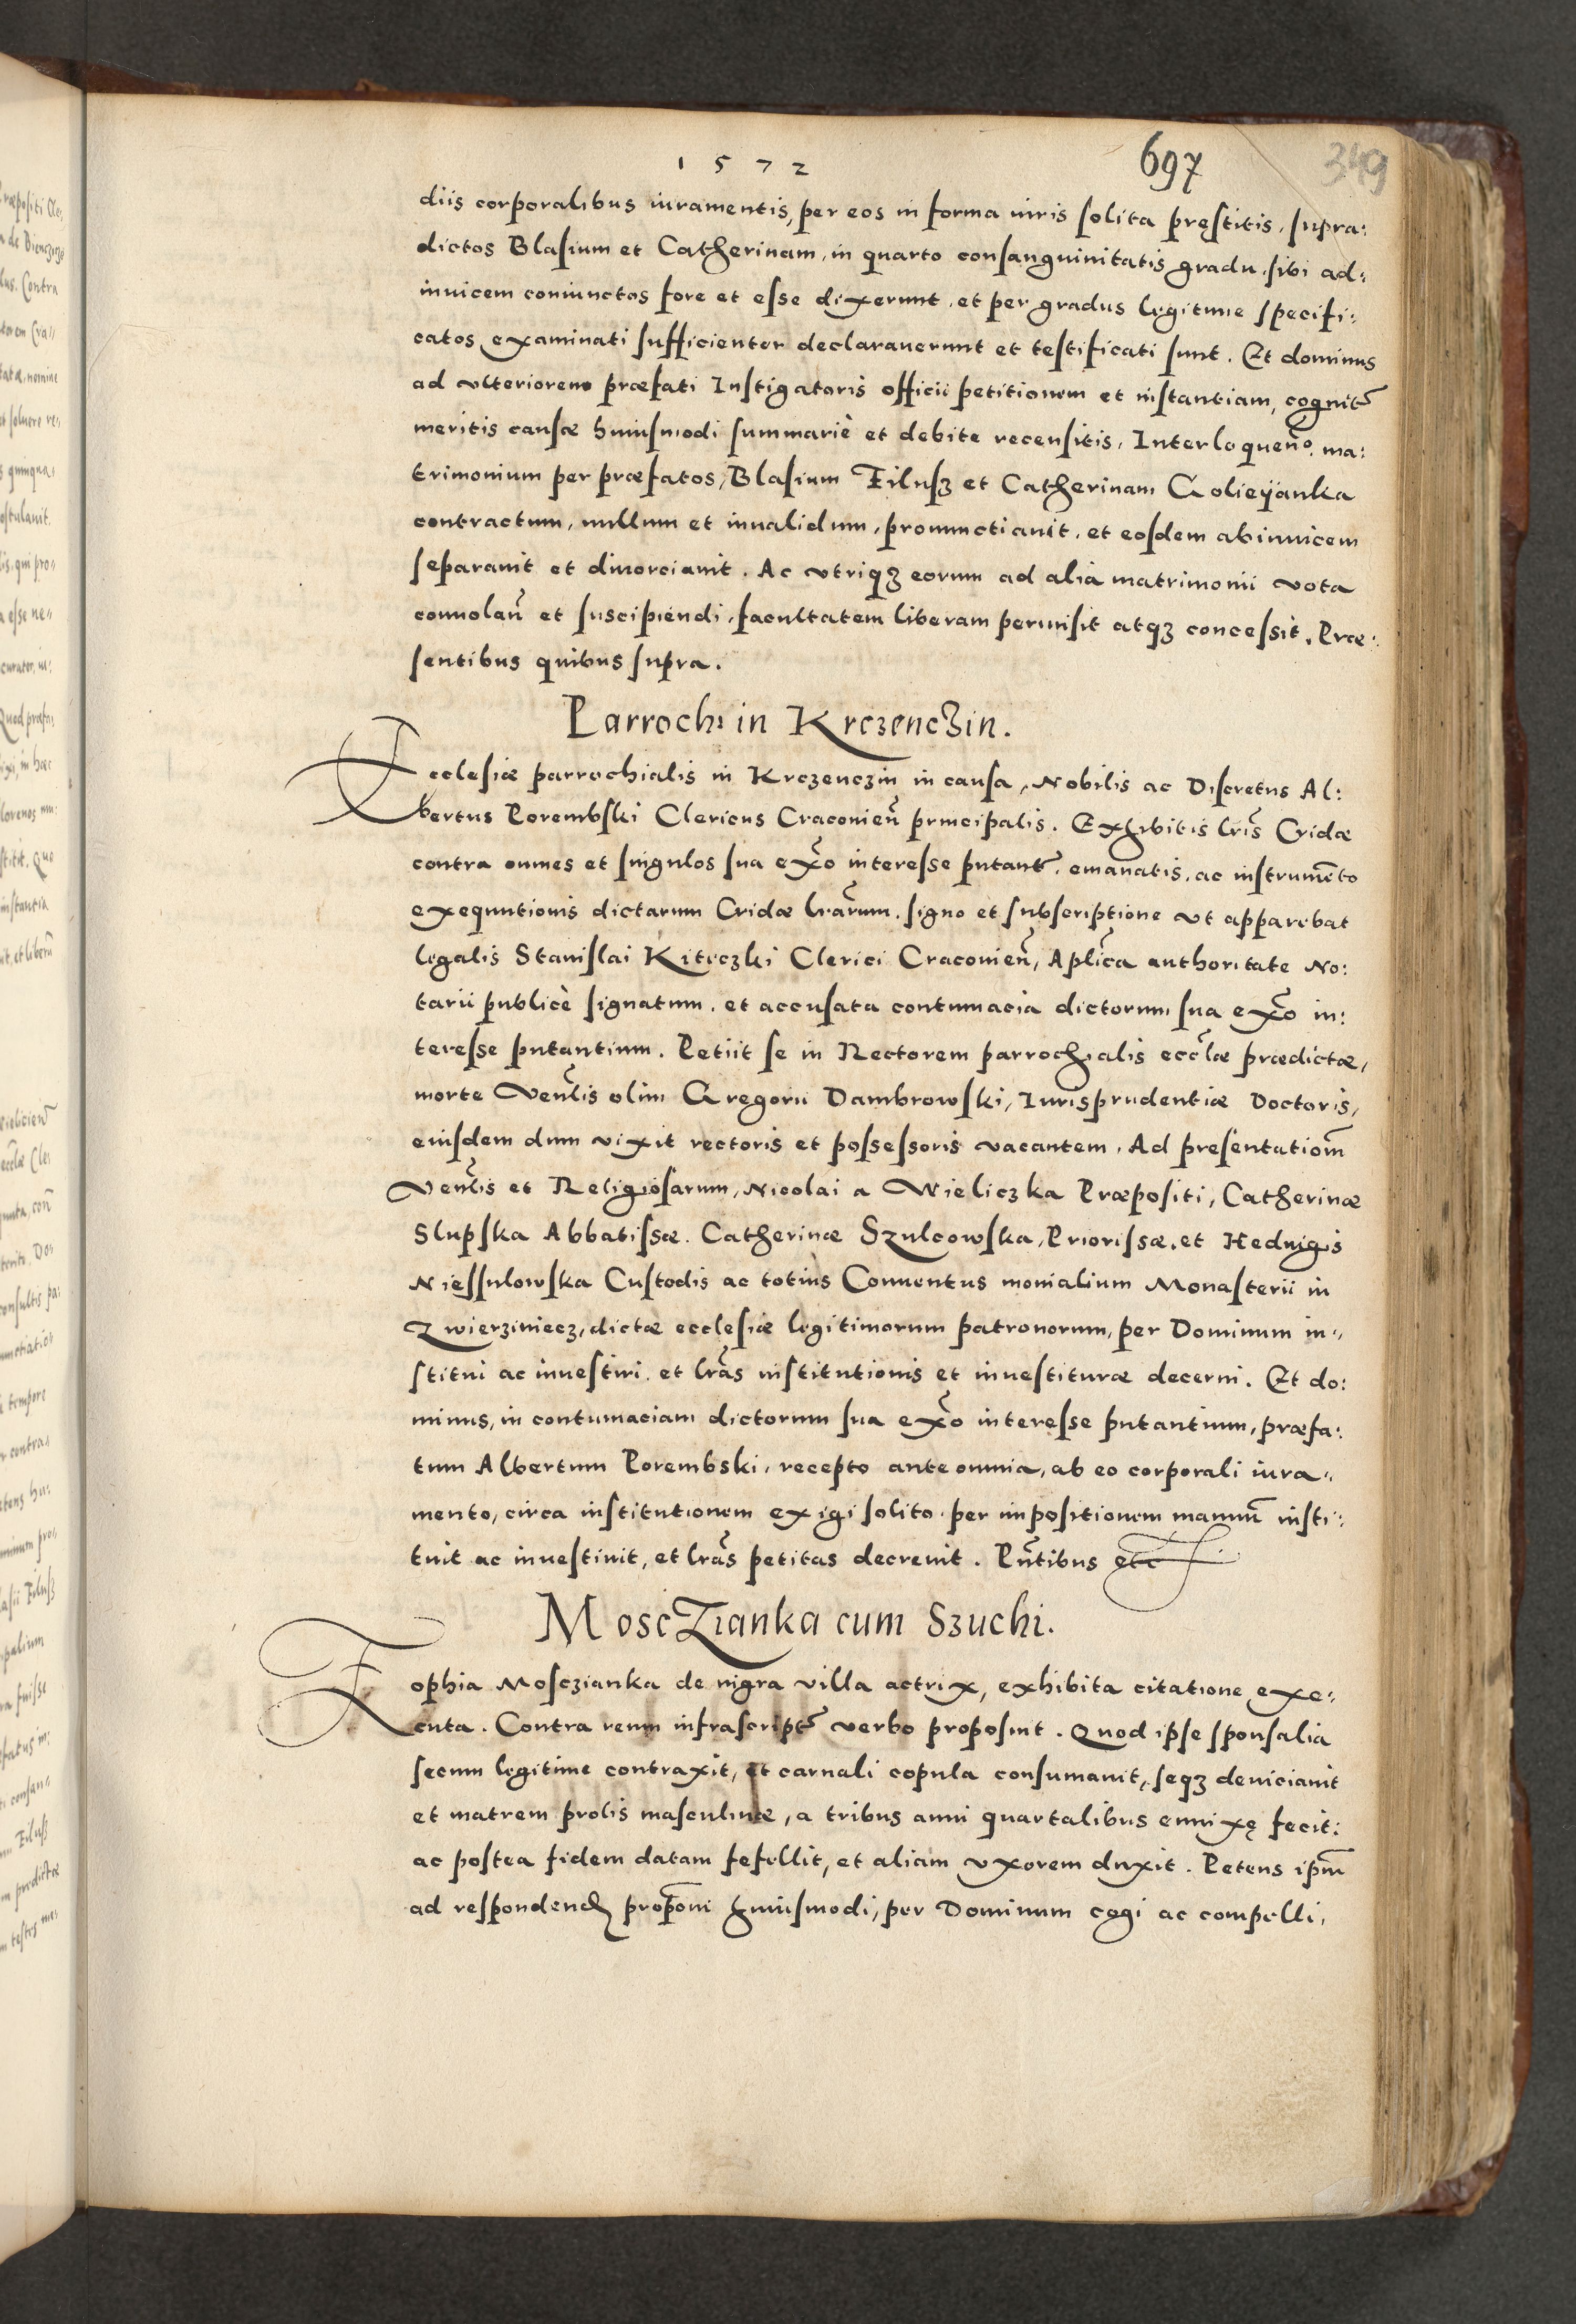 1572
697
349
diis corporalibus iuramentis, per eos in forma iuris solita pręstitis, supra:
dictos Blasium et Catherinam, in quarto consanguinitatis gradu, sibi ad:
inuicem coniunctos fore et esse dixerunt, et per gradus legitime specifi:
catos, examinati sufficienter declarauerunt et testificati sunt. Et dominus
ad vlteriorem præfati Instigatoris officii petitionem et instantiam, cognit
meritis causæ huiusmodi summariè et debite recensitis, Interloqueño ma:
trimonium per præfatos, Blasium Filusz et Catherinam Golieÿanka
contractum, nullum et inualidum, pronunctiauit, et eosdem abinuicem
separauit et diuorciauit. Ac vtriqꝫ eorum ad alia matrimonii vota
conuolañ et suscipiendi, facultatem liberam permisit atqꝫ concessit. Præ:
sentibus quibus supra.
Parrochi in Krczenczin.
Ecclesiæ parrochialis in Krczenczin in causa, Nobilis ac Discretus Al:
bertus Porembski Clericus Cracovieñ principalis. Exhibitis lris Cridæ
contra omnes et singulos sua exo interesse putant, emanatis, ac instrumēto
exequutionis dictarum Cridæ lrarum, signo et subscriptione vt apparebat
legalis Stanislai Kiteczki Clerici Cracouieñ, Aplica authoritate No:
tarii publicè signatum, et accusata contumacia dictorum sua exo in:
teresse putantium. Petiit se in Rectorem parrochialis eccłæ prædictæ,
morte Venlis olim Gregorii Dambrowski, Iurisprudentiæ Doctoris,
eiusdem dum vixit rectoris et possessoris vacantem, Ad presentatiom̄
Venlis et Religiosarum, Nicolai a Wieliczka Præpositi, Catherinæ
Slupska Abbatissæ. Catherinæ Szulcowska, Priorissæ, et Heduigis
Niessulowska Custodis ac totius Conuentus monialium Monasterii in
Zwierziniecz, dictæ ecclesiæ legitimorum patronorum, per Dominum in:
stitui ac inuestiri, et lras institutionis et inuestituræ decerni. Et do:
minus, in contumaciam dictorum sua exo interesse putantium, præfa:
tum Albertum Porembski, recepto ante omnia, ab eo corporali iura:
mento, circa institutionem exigi solito per impositionem manuū insti:
tuit ac inuestiuit, et lras petitas decreuit. Pñtibus etc
MoscZianka cum Szuchi.
Zophia Mosczianka de nigra villa actrix, exhibita citatione exe:
cuta. Contra reum infrascript verbo proposuit. Quod ipse sponsalia
secum legitime contraxit, et carnali copula consumauit, seqꝫ deuiciauit
et matrem prolis masculinæ, a tribus anni quartalibus ennixę fecit:
ac postea fidem datam fefellit, et aliam vxorem duxit. Petens ipm̄
ad respondend propoñi huiusmodi, per Dominum cogi ac compelli,